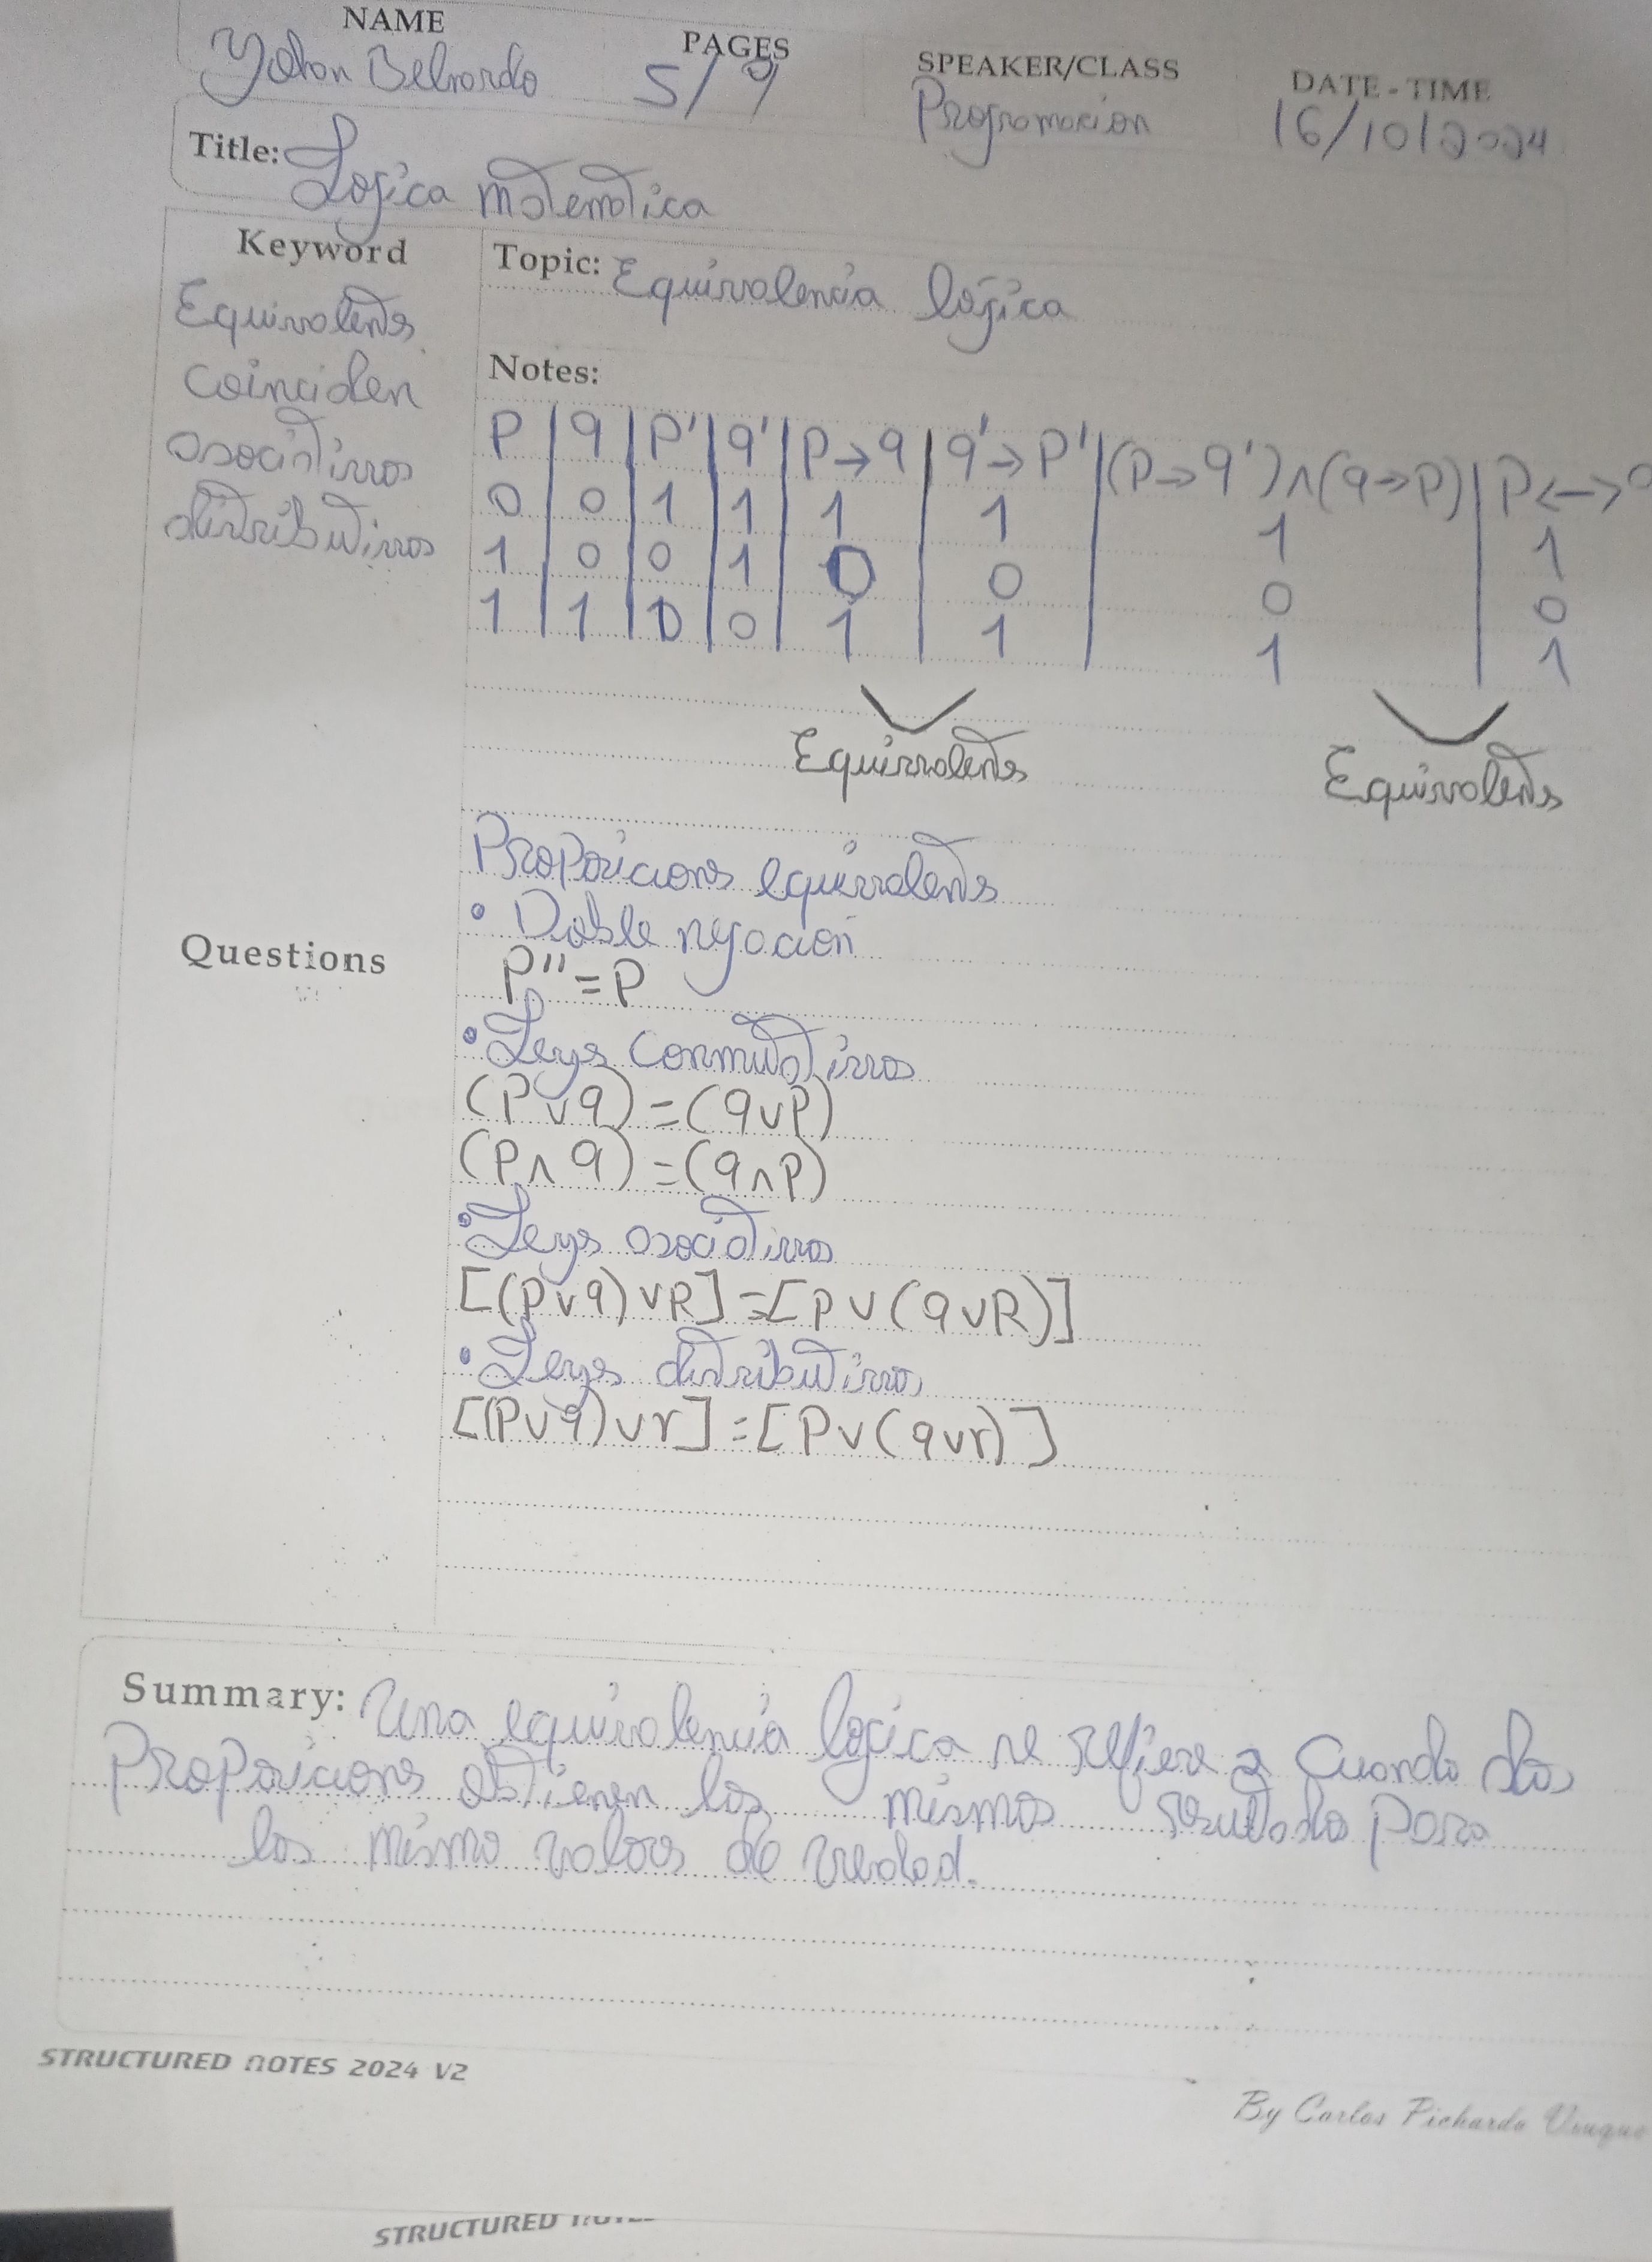 NAME PAGES SPEAKER/CLASS DATE-TIME
Yohan Belnardo 5/9 Programacion 16/10/2024
Title: Logica matematica
Keyword
Equivalentes
coinciden
asociativas
distributivas
Topic: Equivalencia lógica
Notes:
P | q | P' | q' | P→q | q'→P' | (P→q')∧(q→P) | P<->q
0 | 0 | 1 | 1 | 1 | 1 | 1 | 1
1 | 0 | 0 | 1 | 0 | 0 | 0 | 0
1 | 1 | 0 | 0 | 1 | 1 | 1 | 1
Equivalentes Equivalentes
Proposiciones equivalentes
• Doble negacion
P''=P
• Leyes conmutativas
(P∨q)=(q∨P)
(P∧q)=(q∧P)
• Leyes asociativas
[(P∨q)∨R]=[P∨(q∨R)]
• Leyes distributivas
[(P∨q)∨r]=[P∨(q∨r)]
Questions
Summary: Una equivalencia logica se refiere a cuando dos
Proposiciones obtienen los mismos resultados para
los mismo valores de verdad.
STRUCTURED NOTES 2024 V2
By Carlos Pichardo Viuque
STRUCTURED NOTES